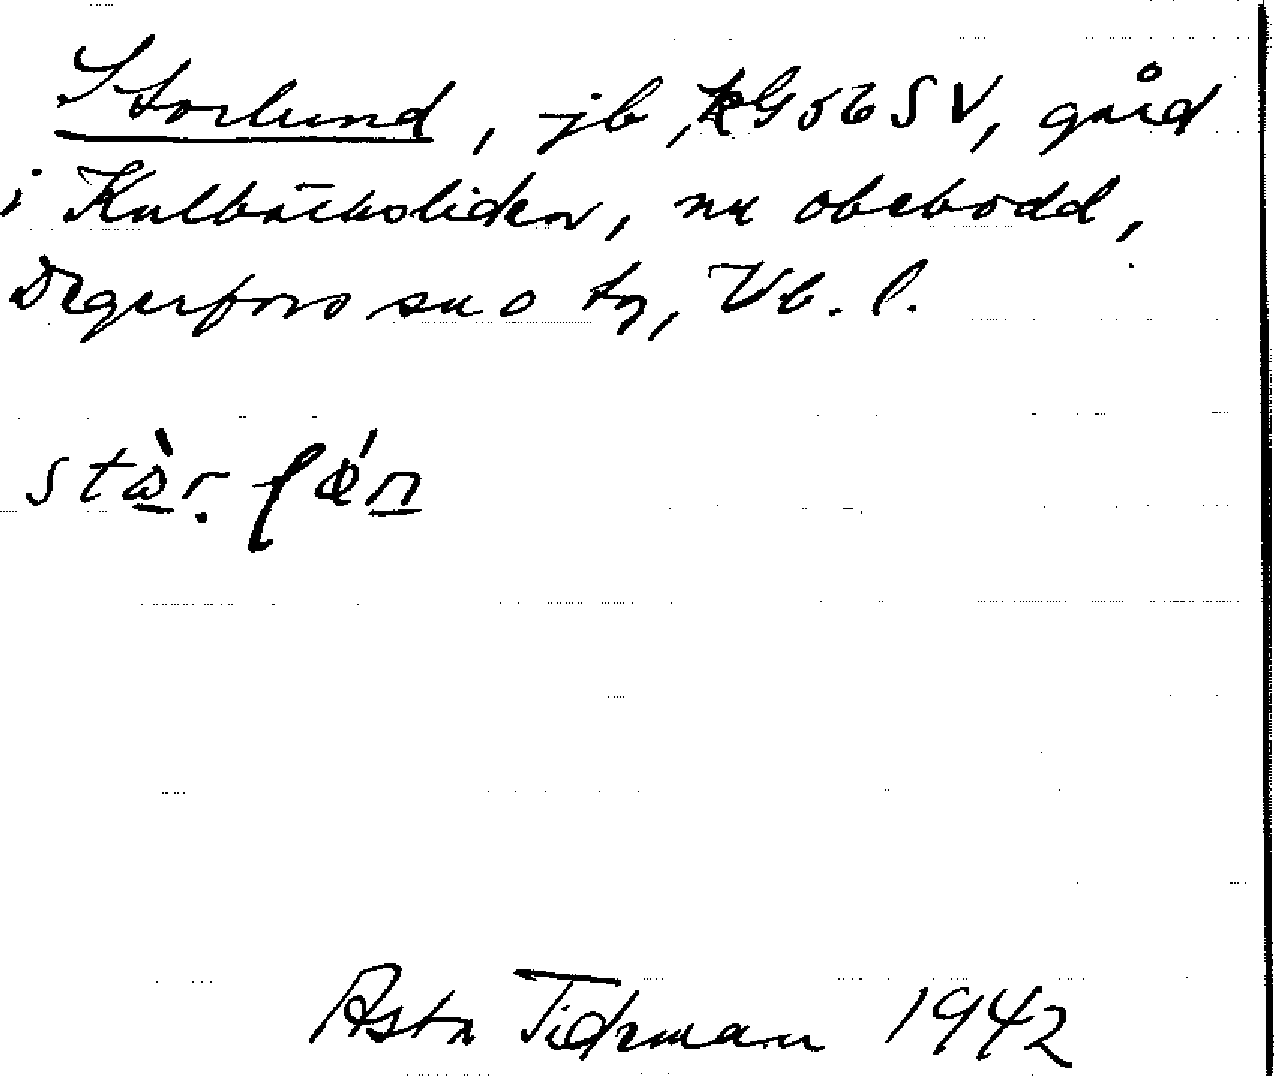 Storlund, jb, kG56SV, gård
i Kulbäcksliden, nu obebodd,
Degerfors sn o tg, Vb. l.
stàr. fǿn
Asta Tideman 1942